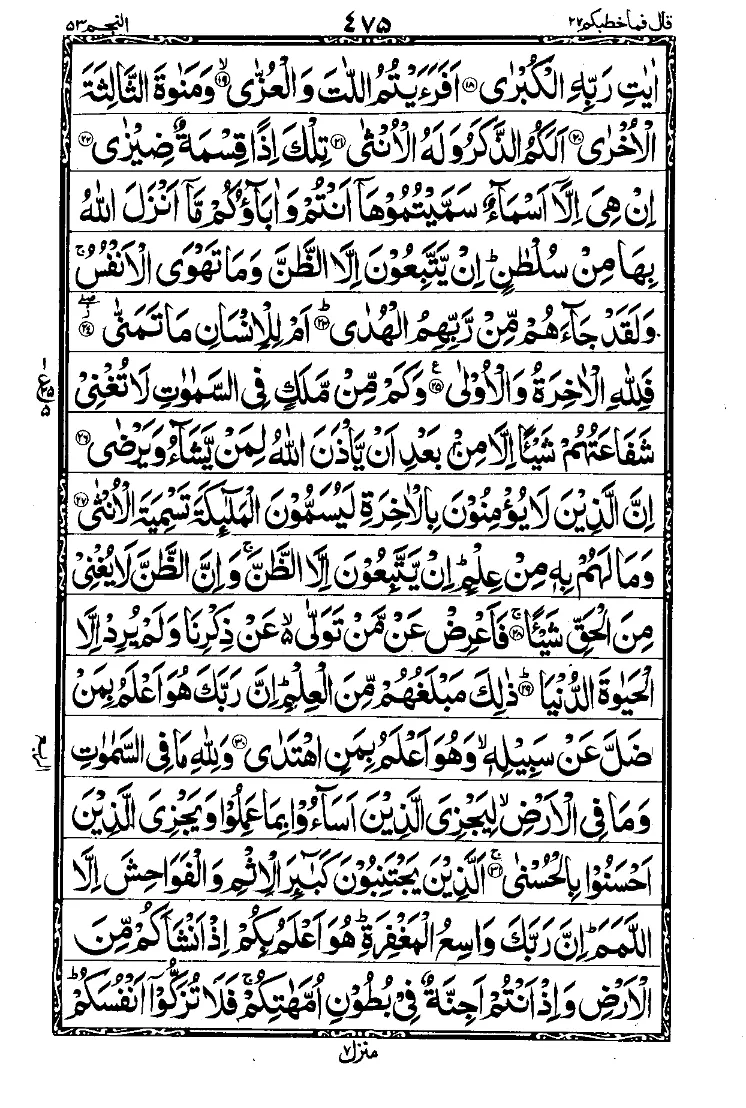 قال فماخطبكم ٢٧ ٤٧۵ النجم ٥٣
اٰيٰتِ رَبِّهِ الْكُبْرٰى ۝١٨ اَفَرَءَيْتُمُ اللّٰتَ وَالْعُزّٰى ۙ۝١٩ وَمَنٰوةَ الثَّالِثَةَ
الْاُخْرٰى ۝٢٠ اَلَكُمُ الذَّكَرُ وَلَهُ الْاُنْثٰى ۝٢١ تِلْكَ اِذًا قِسْمَةٌ ضِيْزٰى ۝٢٢
اِنْ هِىَ اِلَّاۤ اَسْمَآءٌ سَمَّيْتُمُوْهَاۤ اَنْتُمْ وَاٰبَآؤُكُمْ مَّاۤ اَنْزَلَ اللّٰهُ
بِهَا مِنْ سُلْطٰنٍ ؕ اِنْ يَّتَّبِعُوْنَ اِلَّا الظَّنَّ وَمَا تَهْوَى الْاَنْفُسُ ۚ
وَلَقَدْ جَآءَهُمْ مِّنْ رَّبِّهِمُ الْهُدٰى ؕ۝٢٣ اَمْ لِلْاِنْسَانِ مَا تَمَنّٰى ۝٢٤
فَلِلّٰهِ الْاٰخِرَةُ وَالْاُوْلٰى ۝٢٥ ع وَكَمْ مِّنْ مَّلَكٍ فِى السَّمٰوٰتِ لَا تُغْنِىْ
شَفَاعَتُهُمْ شَيْئًا اِلَّا مِنْۢ بَعْدِ اَنْ يَّاْذَنَ اللّٰهُ لِمَنْ يَّشَآءُ وَيَرْضٰى ۝٢٦
اِنَّ الَّذِيْنَ لَا يُؤْمِنُوْنَ بِالْاٰخِرَةِ لَيُسَمُّوْنَ الْمَلٰٓئِكَةَ تَسْمِيَةَ الْاُنْثٰى ۝٢٧
وَمَا لَهُمْ بِهٖ مِنْ عِلْمٍ ؕ اِنْ يَّتَّبِعُوْنَ اِلَّا الظَّنَّ ۚ وَاِنَّ الظَّنَّ لَا يُغْنِىْ
مِنَ الْحَقِّ شَيْئًا ۚ۝٢٨ فَاَعْرِضْ عَنْ مَّنْ تَوَلّٰى ۙ۬ عَنْ ذِكْرِنَا وَلَمْ يُرِدْ اِلَّا
الْحَيٰوةَ الدُّنْيَا ؕ۝٢٩ ذٰلِكَ مَبْلَغُهُمْ مِّنَ الْعِلْمِ ؕ اِنَّ رَبَّكَ هُوَ اَعْلَمُ بِمَنْ
ضَلَّ عَنْ سَبِيْلِهٖ ۙ وَهُوَ اَعْلَمُ بِمَنِ اهْتَدٰى ۝٣٠ وَلِلّٰهِ مَا فِى السَّمٰوٰتِ
وَمَا فِى الْاَرْضِ ۙ لِيَجْزِىَ الَّذِيْنَ اَسَآءُوْا بِمَا عَمِلُوْا وَيَجْزِىَ الَّذِيْنَ
اَحْسَنُوْا بِالْحُسْنٰى ۚ۝٣١ اَلَّذِيْنَ يَجْتَنِبُوْنَ كَبٰٓئِرَ الْاِثْمِ وَالْفَوَاحِشَ اِلَّا
اللَّمَمَ ؕ اِنَّ رَبَّكَ وَاسِعُ الْمَغْفِرَةِ ؕ هُوَ اَعْلَمُ بِكُمْ اِذْ اَنْشَاَكُمْ مِّنَ
الْاَرْضِ وَاِذْ اَنْتُمْ اَجِنَّةٌ فِىْ بُطُوْنِ اُمَّهٰتِكُمْ ۚ فَلَا تُزَكُّوْۤا اَنْفُسَكُمْ ؕ
منزل ٧